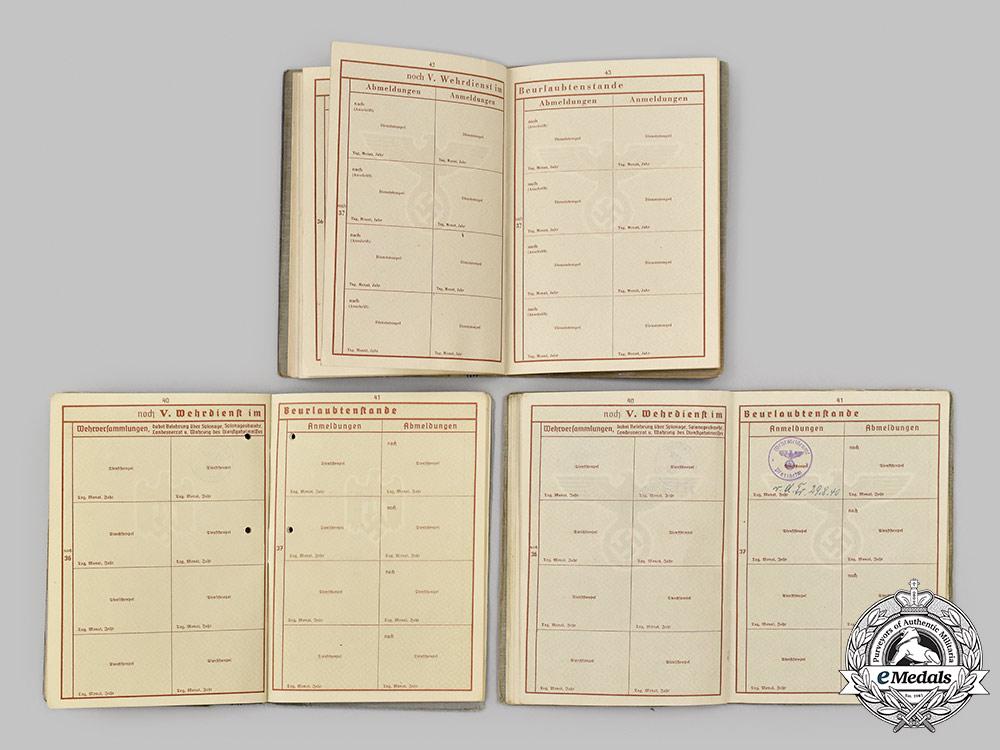 42
noch V. Wehrdienst im
Abmeldungen Anmeldungen
nach
(Anschrift)
Dienststempel Dienststempel
Tag, Monat, Jahr Tag, Monat, Jahr
nach
(Anschrift)
Dienststempel Dienststempel
36
noch
37
Tag, Monat, Jahr Tag, Monat, Jahr
nach
(Anschrift)
Dienststempel Dienststempel
Tag, Monat, Jahr Tag, Monat, Jahr
nach
(Anschrift)
Dienststempel Dienststempel
Tag, Monat, Jahr Tag, Monat, Jahr
43
Beurlaubtenstande
Abmeldungen Anmeldungen
nach
(Anschrift)
Dienststempel Dienststempel
Tag, Monat, Jahr Tag, Monat, Jahr
nach
(Anschrift)
Dienststempel Dienststempel
noch
37
Tag, Monat, Jahr Tag, Monat, Jahr
nach
(Anschrift)
Dienststempel Dienststempel
Tag, Monat, Jahr Tag, Monat, Jahr
nach
(Anschrift)
Dienststempel Dienststempel
Tag, Monat, Jahr Tag, Monat, Jahr
40
noch V. Wehrdienst im
Wehrversammlungen, dabei Belehrung über Spionage, Spionageabwehr,
Landesverrat u. Wahrung des Dienstgeheimnisses
Dienststempel Dienststempel
Tag, Monat, Jahr Tag, Monat, Jahr
Dienststempel Dienststempel
noch
36
Tag, Monat, Jahr Tag, Monat, Jahr
Dienststempel Dienststempel
Tag, Monat, Jahr Tag, Monat, Jahr
Dienststempel Dienststempel
Tag, Monat, Jahr Tag, Monat, Jahr
41
Beurlaubtenstande
Anmeldungen Abmeldungen
nach
Dienststempel Dienststempel
Tag, Monat, Jahr Tag, Monat, Jahr
nach
Dienststempel Dienststempel
37
Tag, Monat, Jahr Tag, Monat, Jahr
nach
Dienststempel Dienststempel
Tag, Monat, Jahr Tag, Monat, Jahr
nach
Dienststempel Dienststempel
Tag, Monat, Jahr Tag, Monat, Jahr
40
noch V. Wehrdienst im
Wehrversammlungen, dabei Belehrung über Spionage, Spionageabwehr,
Landesverrat u. Wahrung des Dienstgeheimnisses
Dienststempel Dienststempel
Tag, Monat, Jahr Tag, Monat, Jahr
Dienststempel Dienststempel
noch
36
Tag, Monat, Jahr Tag, Monat, Jahr
Dienststempel Dienststempel
Tag, Monat, Jahr Tag, Monat, Jahr
Dienststempel Dienststempel
Tag, Monat, Jahr Tag, Monat, Jahr
41
Beurlaubtenstande
Anmeldungen Abmeldungen
nach
Wehrmeldeamt
Dienststempel Dienststempel
29.8.40
Tag, Monat, Jahr Tag, Monat, Jahr
nach
Dienststempel Dienststempel
37
Tag, Monat, Jahr Tag, Monat, Jahr
nach
Dienststempel
Tag, Monat, Jahr
Dienststempel
Tag, Monat, Jahr
Purveyors of Authentic Militaria
eMedals